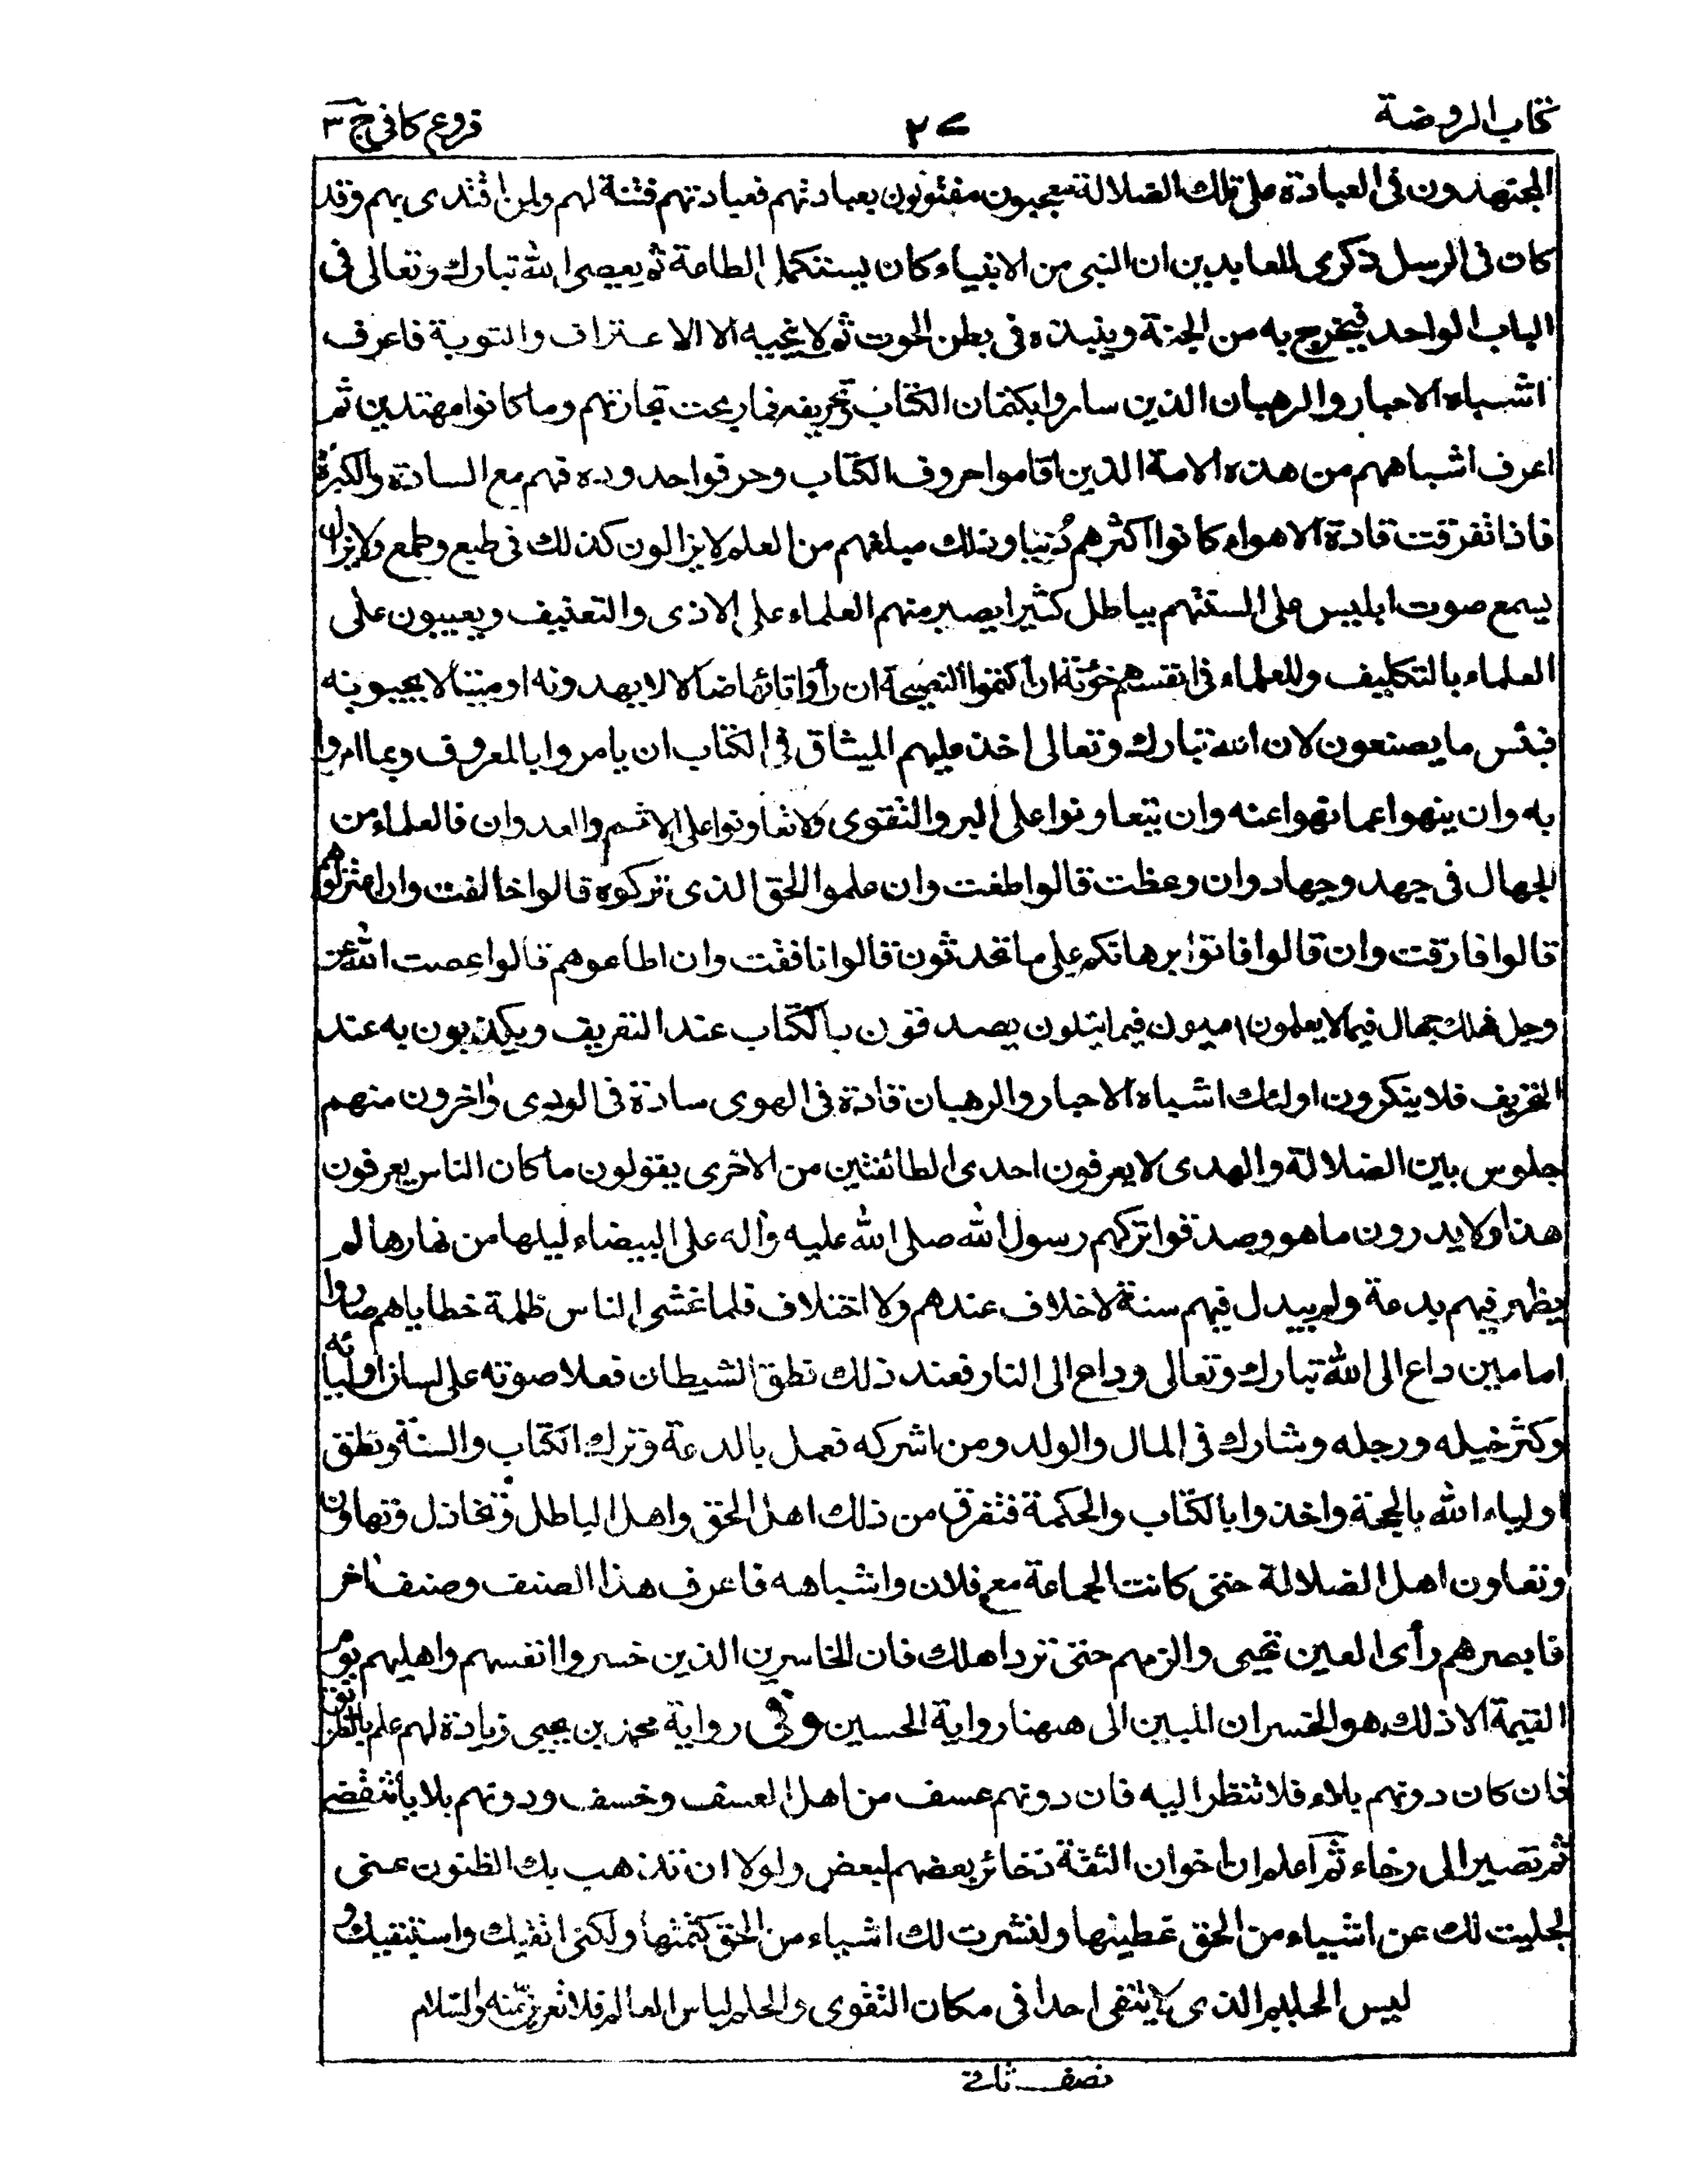 كتاب الروضة ٢٧ فروع كافي ج ٣
المجتهدون فى العبادة على تلك الضلالة معجبون مفتونون بعبادتهم فعبادتهم فتنة لهم ولمن اقتدى بهم وقد
كان فى الرسل ذكرى للعابدين ان النبى من الانبياء كان يستكمل الطاعة ثم يعصى الله تبارك وتعالى فى
الباب الواحد فيخرج به من الجنة وينبذه فى بطن الحوت ثم لا ينجيه الا الاعتراف والتوبة فاعرف
اشباه الاحبار والرهبان الذين ساروا بكتمان الكتاب وتحريفه فما ربحت تجارتهم وما كانوا مهتدين ثم
اعرف اشباههم من هذه الامة الذين اقاموا حروف الكتاب وحرفوا حدوده فهم مع السادة والكبرة
فاذا تفرقت قادة الاهواء كانوا اكثرهم دُنيا وذلك مبلغهم من العلم لا يزالون كذلك فى طبع وطمع ولا يزال
يسمع صوت ابليس على السنتهم بباطل كثير ايصبر منهم العلماء على الاذى والتعنيف ويعيبون على
العلماء بالتكليف وللعلماء فى انفسهم خونة ان كتموا النصيحة ان رأوا تائها ضالا لا يهدونه او ميتا لا يحيونه
فبئس ما يصنعون لان الله تبارك وتعالى اخذ عليهم الميثاق فى الكتاب ان يامروا بالمعروف وبما امروا
به وان ينهوا عما نهوا عنه وان يتعاونوا على البر والتقوى ولا تعاونوا على الاثم والعدوان فالعلماء من
الجهال فى جهد وجهاد وان وعظت قالوا طغت وان علموا الحق الذى تركوه قالوا خالفت وان اعتزلوهم
قالوا فارقت وان قالوا فاتوا برهانكم على ما تحدثون قالوا نافقت وان اطاعوهم قالوا عصت الله عز
وجل فهلك جهال فيما لا يعلمون اميون فيما يتلون يصدقون بالكتاب عند التعريف ويكذبون به عند
التحريف فلا ينكرون اولئك اشباه الاحبار والرهبان قادة فى الهوى سادة فى الردى واخرون منهم
جلوس بين الضلالة والهدى لا يعرفون احدى الطائفتين من الاخرى يقولون ما كان الناس يعرفون
هذا ولا يدرون ما هو وصدقوا تركهم رسول الله صلى الله عليه واله على البيضاء ليلها من نهارها لم
يظهر فيهم بدعة ولم يبدل فيهم سنة لا خلاف عندهم ولا اختلاف فلما غشى الناس ظلمة خطاياهم صاروا
امامين داع الى الله تبارك وتعالى وداع الى النار فعند ذلك نطق الشيطان فعلا صوته على لسان اوليائه
وكثر خيله ورجله وشارك فى المال والولد ومن اشركه فعمل بالبدعة وترك الكتاب والسنة ونطق
اولياء الله بالحجة واخذوا بالكتاب والحكمة فتفرق من ذلك اهل الحق واهل الباطل وتخاذل وتهاون
وتعاون اهل الضلالة حتى كانت الجماعة مع فلان واشباهه فاعرف هذا الصنف وصنف اخر
فابصرهم رأى العين تحيى والزمهم حتى ترد اهلك فان الخاسرين الذين خسروا انفسهم واهليهم يوم
القيمة الا ذلك هو الخسران المبين الى ههنا رواية الحسين وفى رواية محمد بن يحيى زيادة لهم علم بالطريق
فان كان دونهم بلاء فلا تنظر اليه فان دونهم عسف من اهل العسف وخسف ودونهم بلايا تنقضى
ثم تصير الى رخاء ثم اعلم ان اخوان الثقة ذخائر بعضهم لبعض ولولا ان تذهب بك الظنون عنى
لجليت لك عن اشياء من الحق غطيتها ولنشرت لك اشياء من الحق كتمتها ولكنى اتقيك واستبقيك و
ليس الحليم الذى لا يتقى احدا فى مكان التقوى والحلم لباس العالم فلا تعرين منه والسلام
نصف ثانى